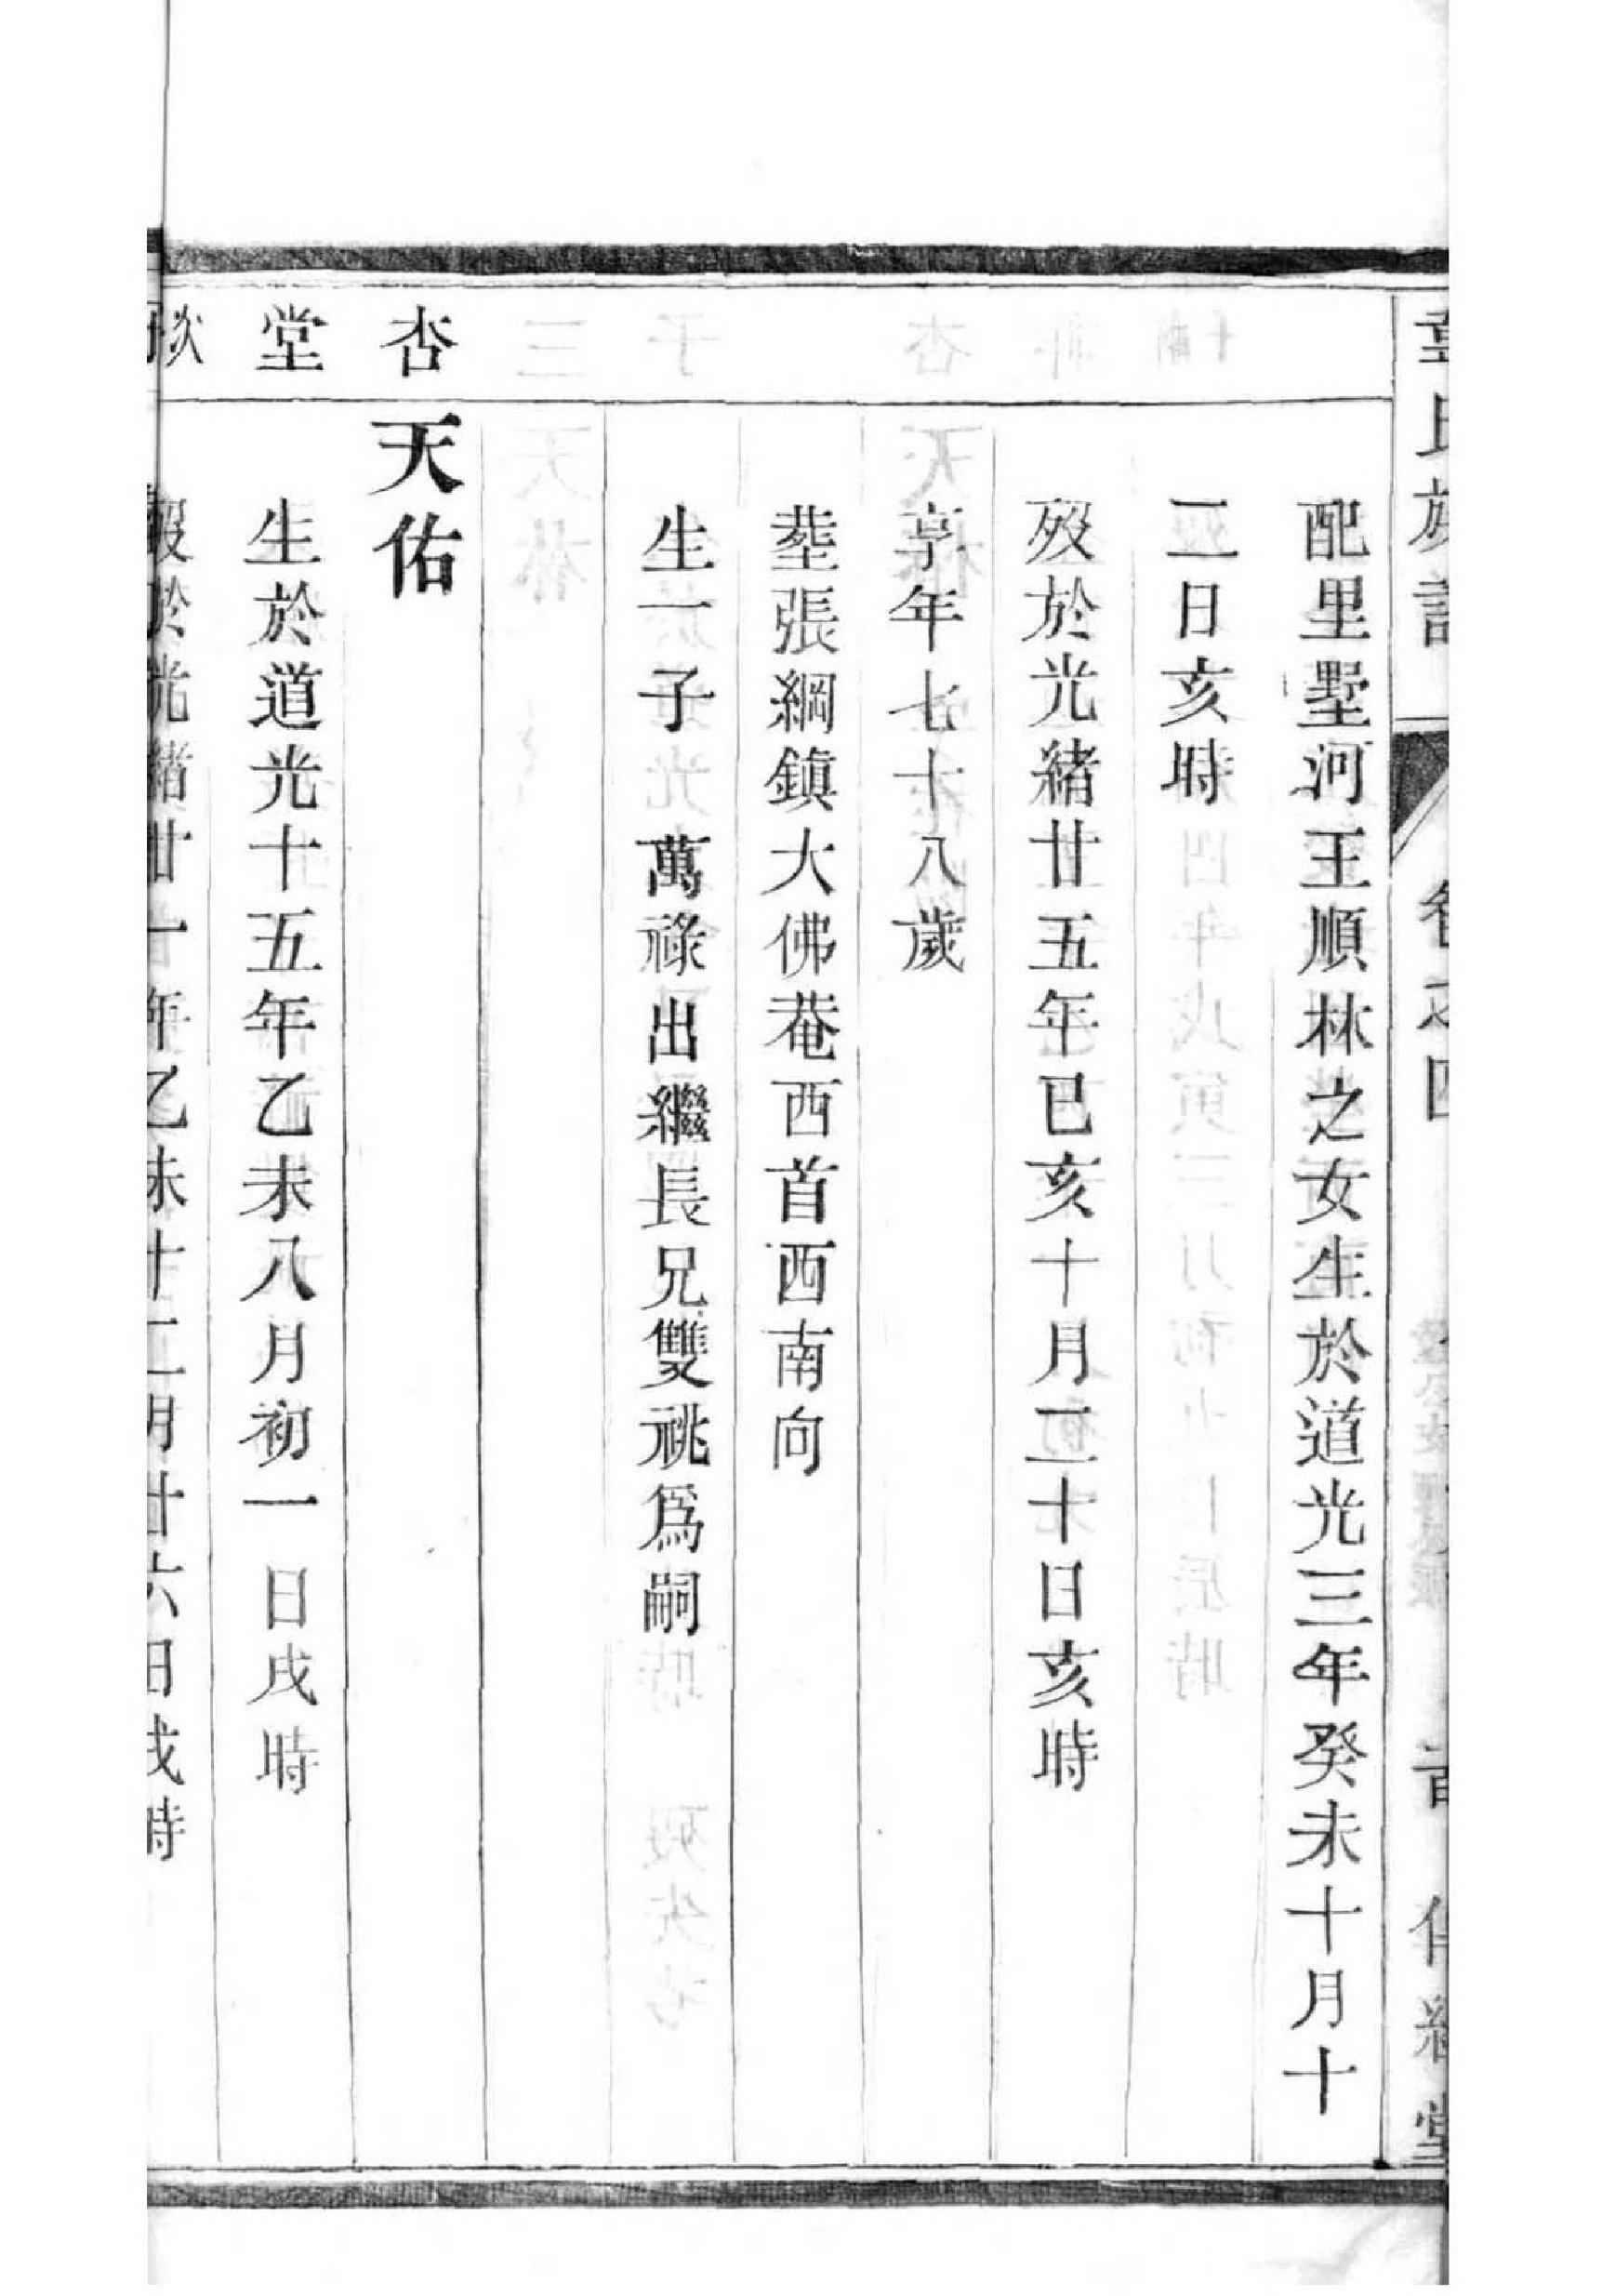 氏族
卷之四
配里墅河王順林之女生於道光三年癸未十月十
二日亥時
歿於光緒廿五年已亥十月二十日亥時
享年七十八歲
塟張綱鎮大佛菴西首西南向
生一子 萬祿出繼長兄雙祧爲嗣
杏
天佑
堂
生於道光十五年乙未八月初一日戌時
歿於光緒廿一年乙未十二月廿六日戌時